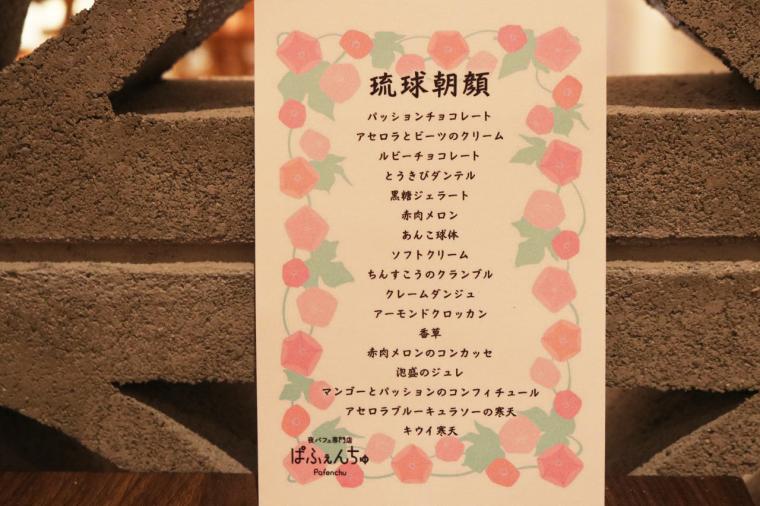 琉球朝顔
パッションチョコレート
アセロラとビーツのクリーム
ルビーチョコレート
とうきびダンテル
黒糖ジェラート
赤肉メロン
あんこ球体
ソフトクリーム
ちんすこうのクランブル
クレームダンジュ
アーモンドクロッカン
香草
赤肉メロンのコンカッセ
泡盛のジュレ
マンゴーとパッションのコンフィチュール
アセロラブルーキュラソーの寒天
キウイ寒天
夜パフェ専門店
ぱふぇんちゅ
Pafenchu